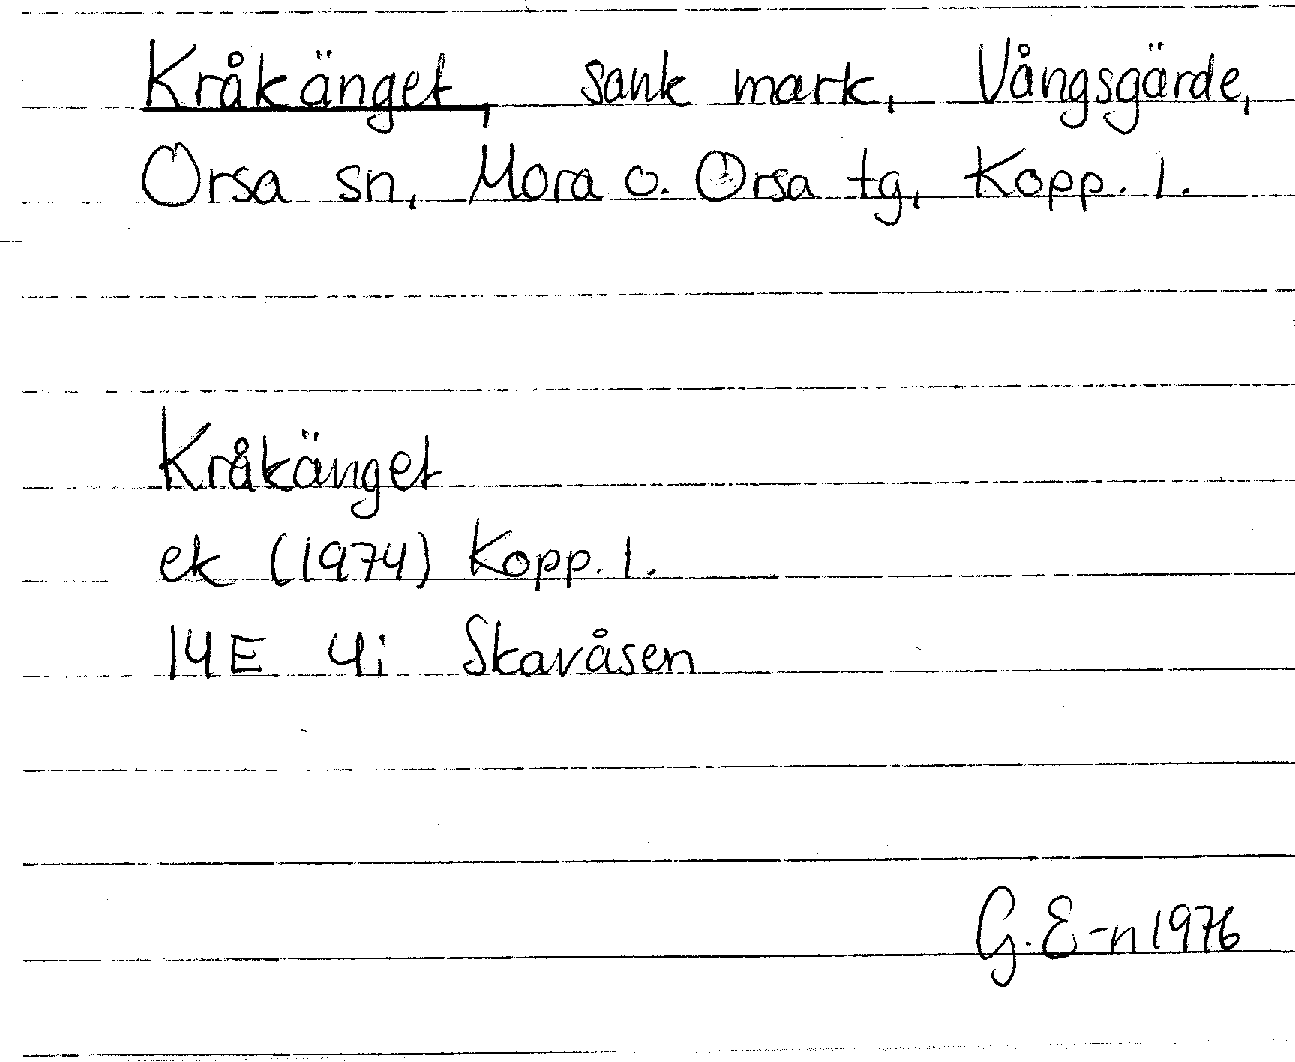 Kråkänget, sank mark, Vångsgärde,
Orsa sn, Mora o. Orsa tg, Kopp. l.
Kråkänget
ek (1974) Kopp. l.
14E 4i Skavåsen
G. E-n 1976